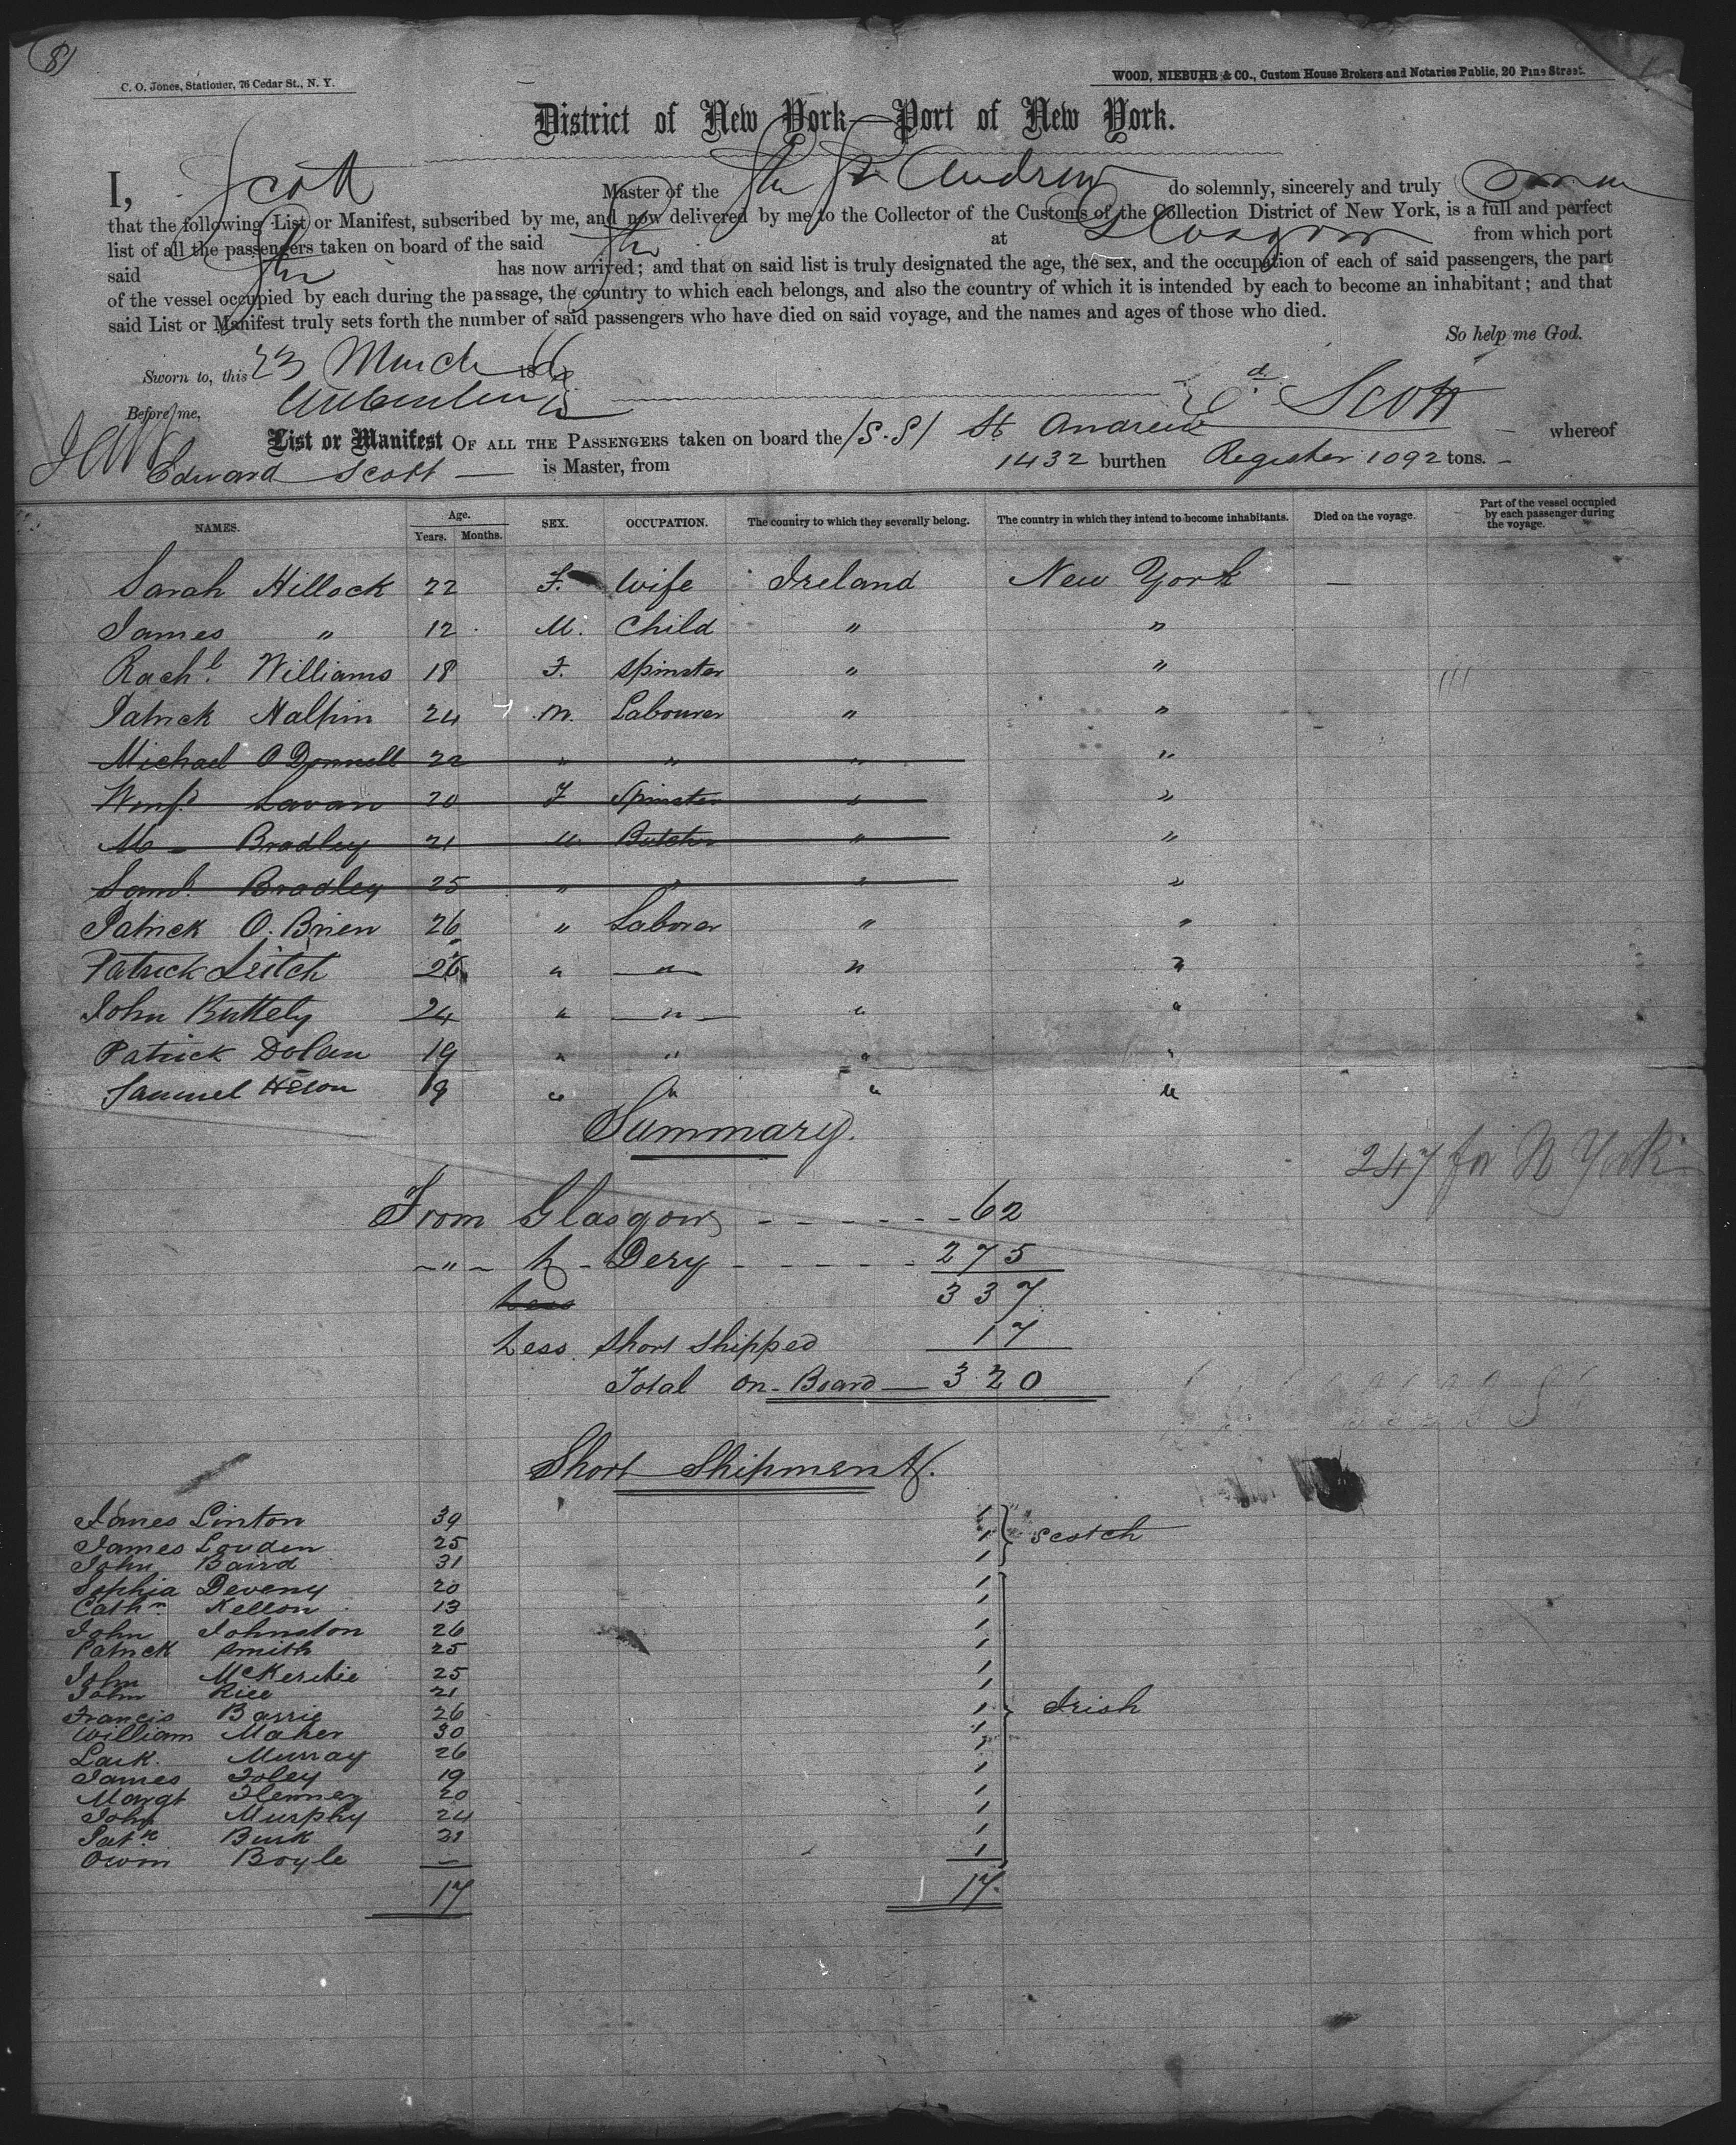 81
C. O. Jones, Stationer, 76 Cedar St., N. Y.
WOOD, NIEBUHR & CO., Custom House Brokers and Notaries Public, 20 Pine Street.
District of New York—Port of New York.
I, Scott Master of the Str St Andrew do solemnly, sincerely and truly swear
that the following List or Manifest, subscribed by me, and now delivered by me to the Collector of the Customs of the Collection District of New York, is a full and perfect
list of all the passengers taken on board of the said Str at Glasgow from which port
said Str has now arrived; and that on said list is truly designated the age, the sex, and the occupation of each of said passengers, the part
of the vessel occupied by each during the passage, the country to which each belongs, and also the country of which it is intended by each to become an inhabitant; and that
said List or Manifest truly sets forth the number of said passengers who have died on said voyage, and the names and ages of those who died.
So help me God.
Sworn to, this 23 March 1866
Ed. Scott
Before me,
List or Manifest OF ALL THE PASSENGERS taken on board the (S.S) St Andrew whereof
Edward Scott is Master, from 1432 burthen Register 1092 tons.
NAMES. Age. Years. Months. SEX. OCCUPATION. The country to which they severally belong. The country in which they intend to become inhabitants. Died on the voyage. Part of the vessel occupied by each passenger during the voyage.
Sarah Hillock 22 F. Wife Ireland New York —
James " 12 M. Child " "
Rachl. Williams 18 F. Spinster " "
Patrick Halpin 24 M. Labourer " "
Michael O Donnell 22 " " " "
Winfd Lavan 20 F Spinster " "
M— Bradley 21 M. Butcher " "
Saml. Bradley 25 " " " "
Patrick O. Brien 26 " Laborer " "
Patrick Leitch 26 " " " "
John Buttely 24 " " " "
Patrick Dolan 19 " " " "
Samuel 19 " " " "
Summary.
247 for N York
From Glasgow 62
" L. Dery 275
Less 337
Less short shipped 17
Total on Board 320
Short Shipments.
James Linton 39 1
James Louden 25 1 Scotch
John Baird 31 1
Sophia Deveny 20 1
Cathn. Kellon 13 1
John Johnston 26 1
Patrick Smith 25 1
John McKerchie 25 1
John Rice 21 1
Francis Barrie 26 1 Irish
William Maher 30 1
Lack. Murray 26 1
James Foley 19 1
Margt 20 1
John Murphy 24 1
Patk Burk 21 1
Owin Boyle — 1
17 17